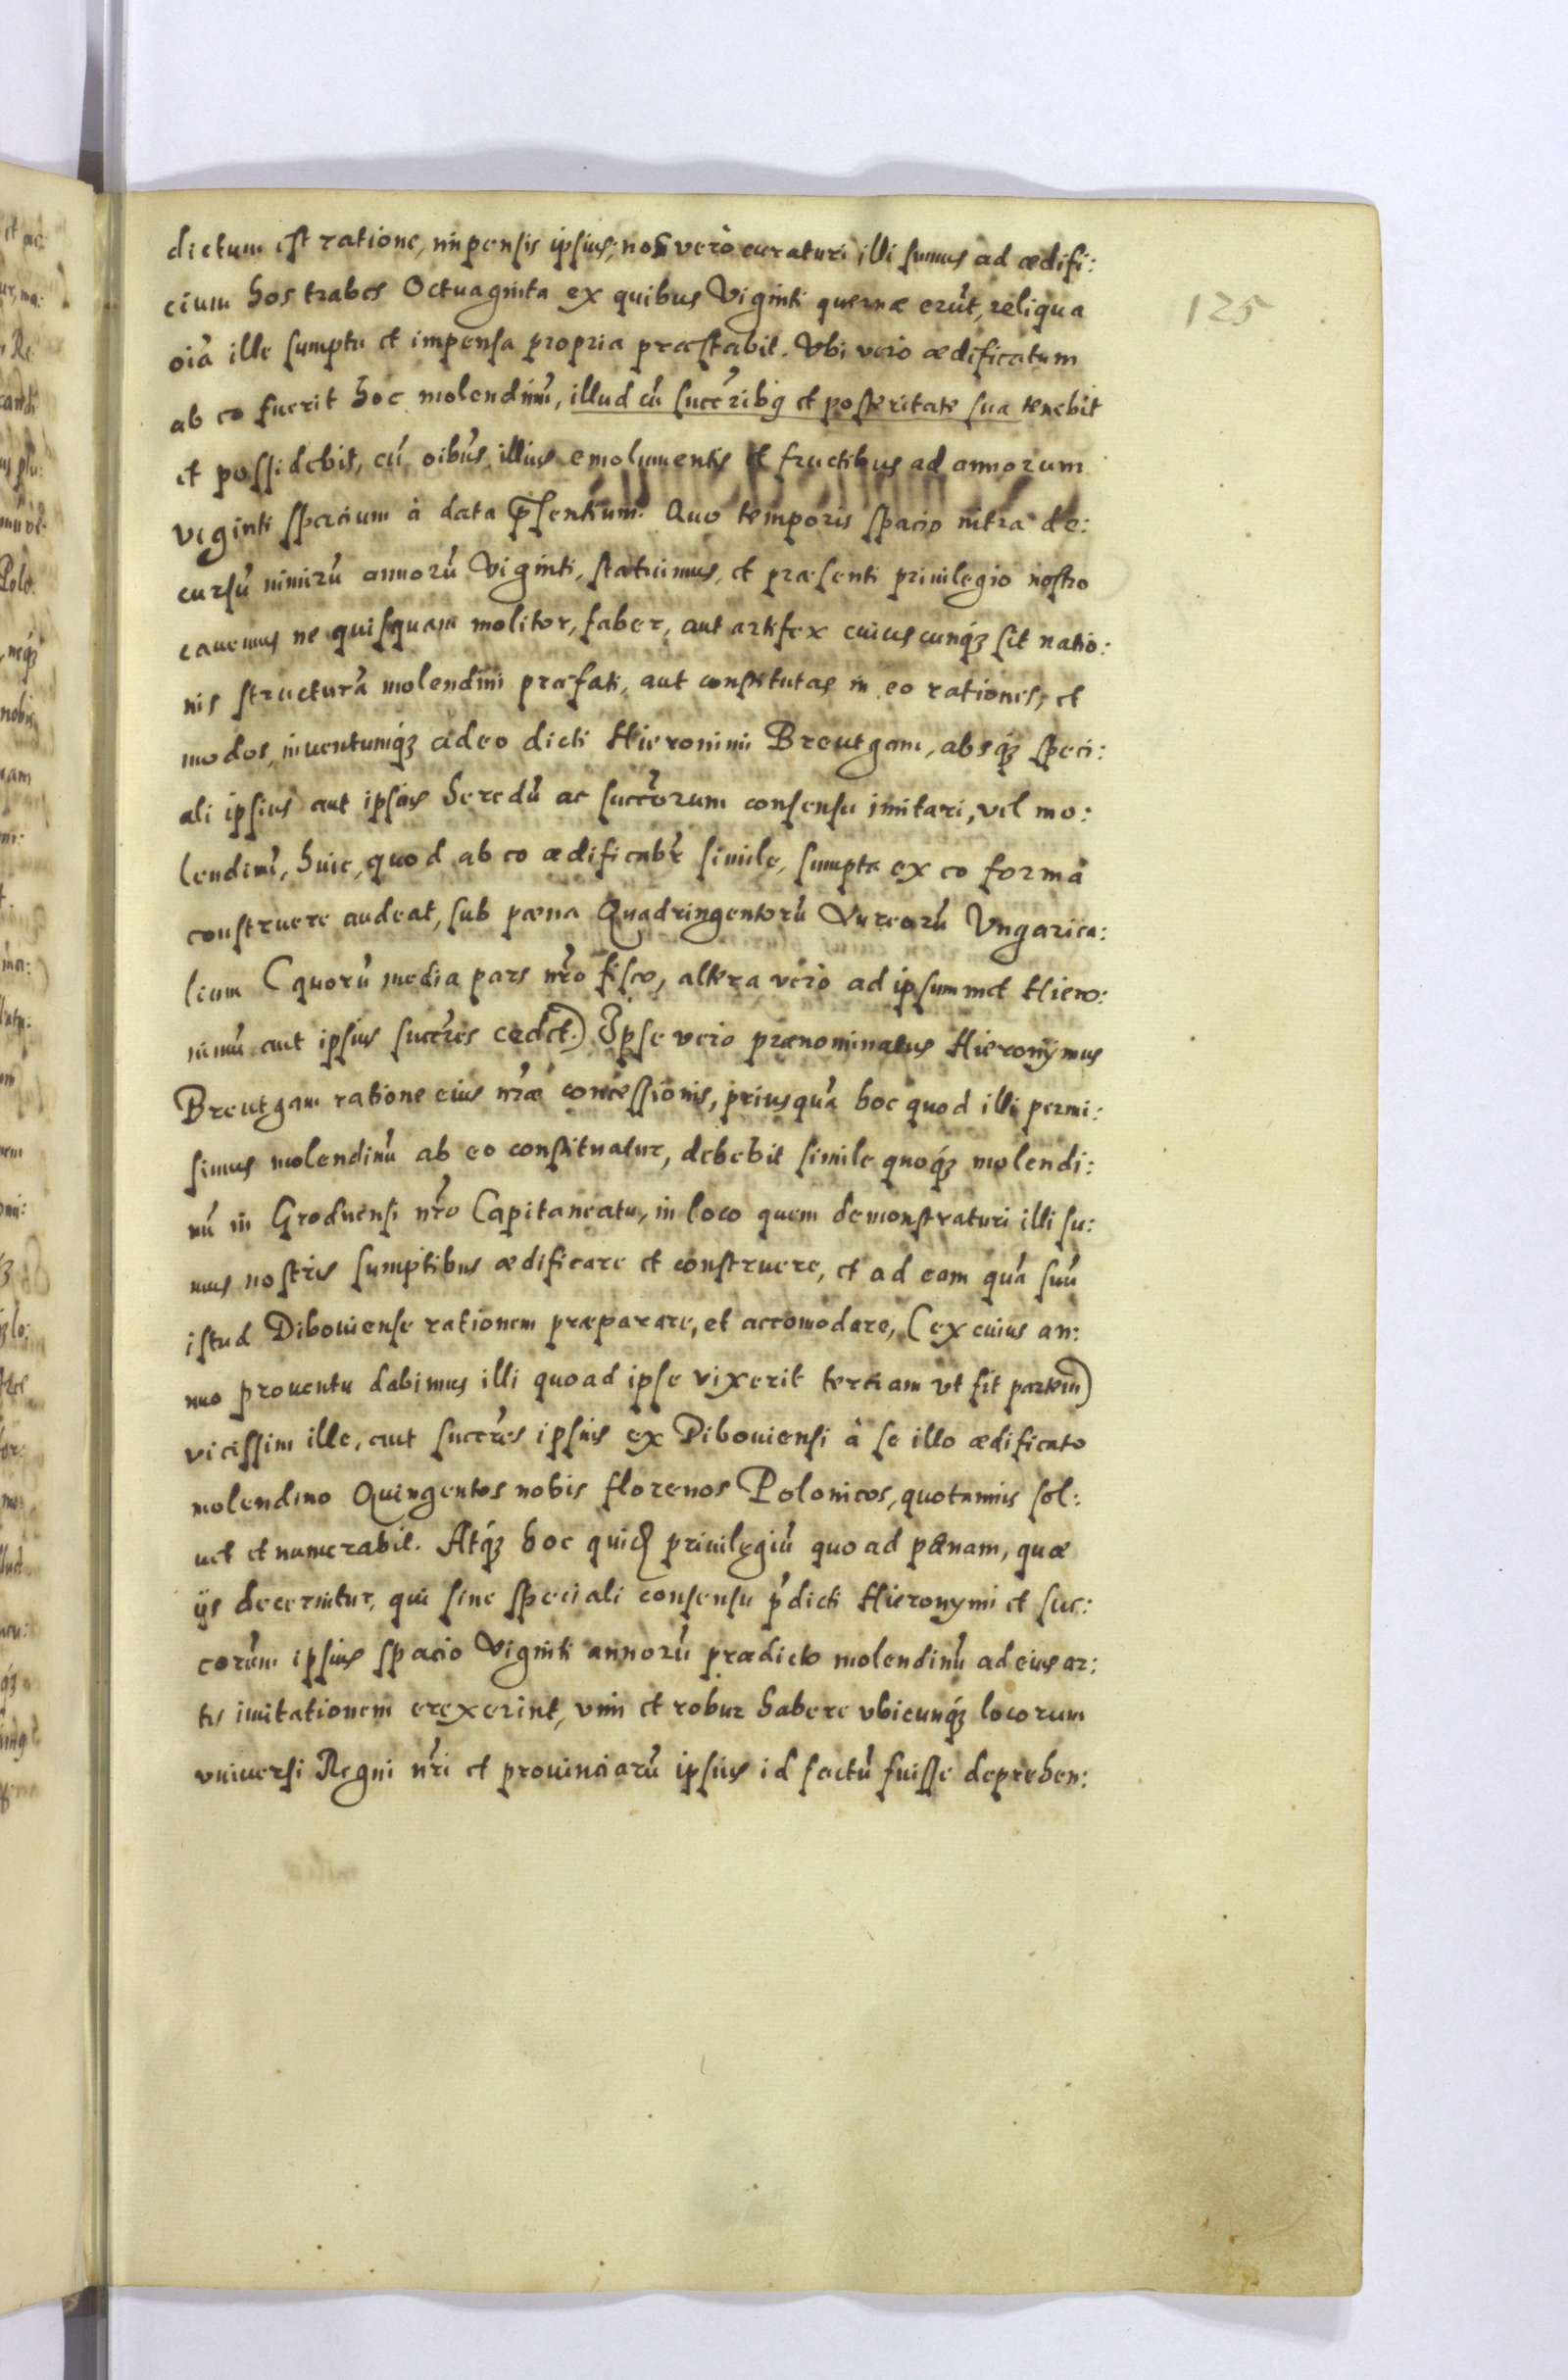 dictum est ratione, impensis ipsius, nos verò curaturi illi sumus ad ædifi:
cium hos trabes Octuaginta ex quibus Viginti quernæ erūt, reliqua
125
oiā ille sumptu et impensa propria præstabit. Vbi vero ædificatum
ab eo fuerit hoc molendinū, illud cū succribꝫ et posteritate sua tenebit
et possidebit, cū oibus illius emolumentis et fructibus ad annorum
viginti spacium à data p̄sentium. Quo temporis spacio intra de:
cursū nimirū annorū Viginti, statuimus, et præsenti priuilegio nostro
cauemus ne quisquam molitor, faber, aut artifex cuiuscunqꝫ sit natio:
nis structurā molendini præfati, aut constitutas in eo rationes, et
modos, inuentumqꝫ adeo dicti Hieronimi Breutgam, absqꝫ speci:
ali ipsius aut ipsius heredū ac succrorum consensu imitari, vel mo:
lendinū, huic, quod ab eo ædificabr̄ simile, sumpta ex eo forma
construere audeat, sub pæna Quadringentorū Aureorū Vngarica:
lium (quorū media pars nr̄o fisco, altera verò ad ipsummet Hiero:
nimū aut ipsius succres cedet.) Ipse vero prænominatus Hieronymus
Breutgam ratione eius nr̄æ concessionis, priusquā hoc quod illi permi:
simus molendinū ab eo constituatur, debebit simile quoqꝫ molendi:
nū in Grodnensi nr̄o Capitaneatu, in loco quem demonstraturi illi su:
mus nostris sumptibus ædificare et construere, et ad eam quā suū
istud Diboviense rationem præparare, et accomodare, (ex cuius an:
nuo prouentu dabimus illi quoad ipse vixerit tertiam vt fit partem)
vicissim ille, aut succres ipsius ex Dibouiensi à se illo ædificato
molendino Quingentos nobis florenos Polonicos, quotannis sol:
uet et numerabit. Atqꝫ hoc quidꝫ priuilegiū quo ad pænam, quæ
ijs decernitur, qui sine speciali consensu p̄dicti Hieronymi et suc:
corūm ipsius spacio Viginti annorū prædicto molendinū ad eius ar:
tis imitationem erexerint, vim et robur habere vbicunqꝫ locorum
vniuersi Regni nr̄i et prouinciarū ipsius id factū fuisse deprehen: